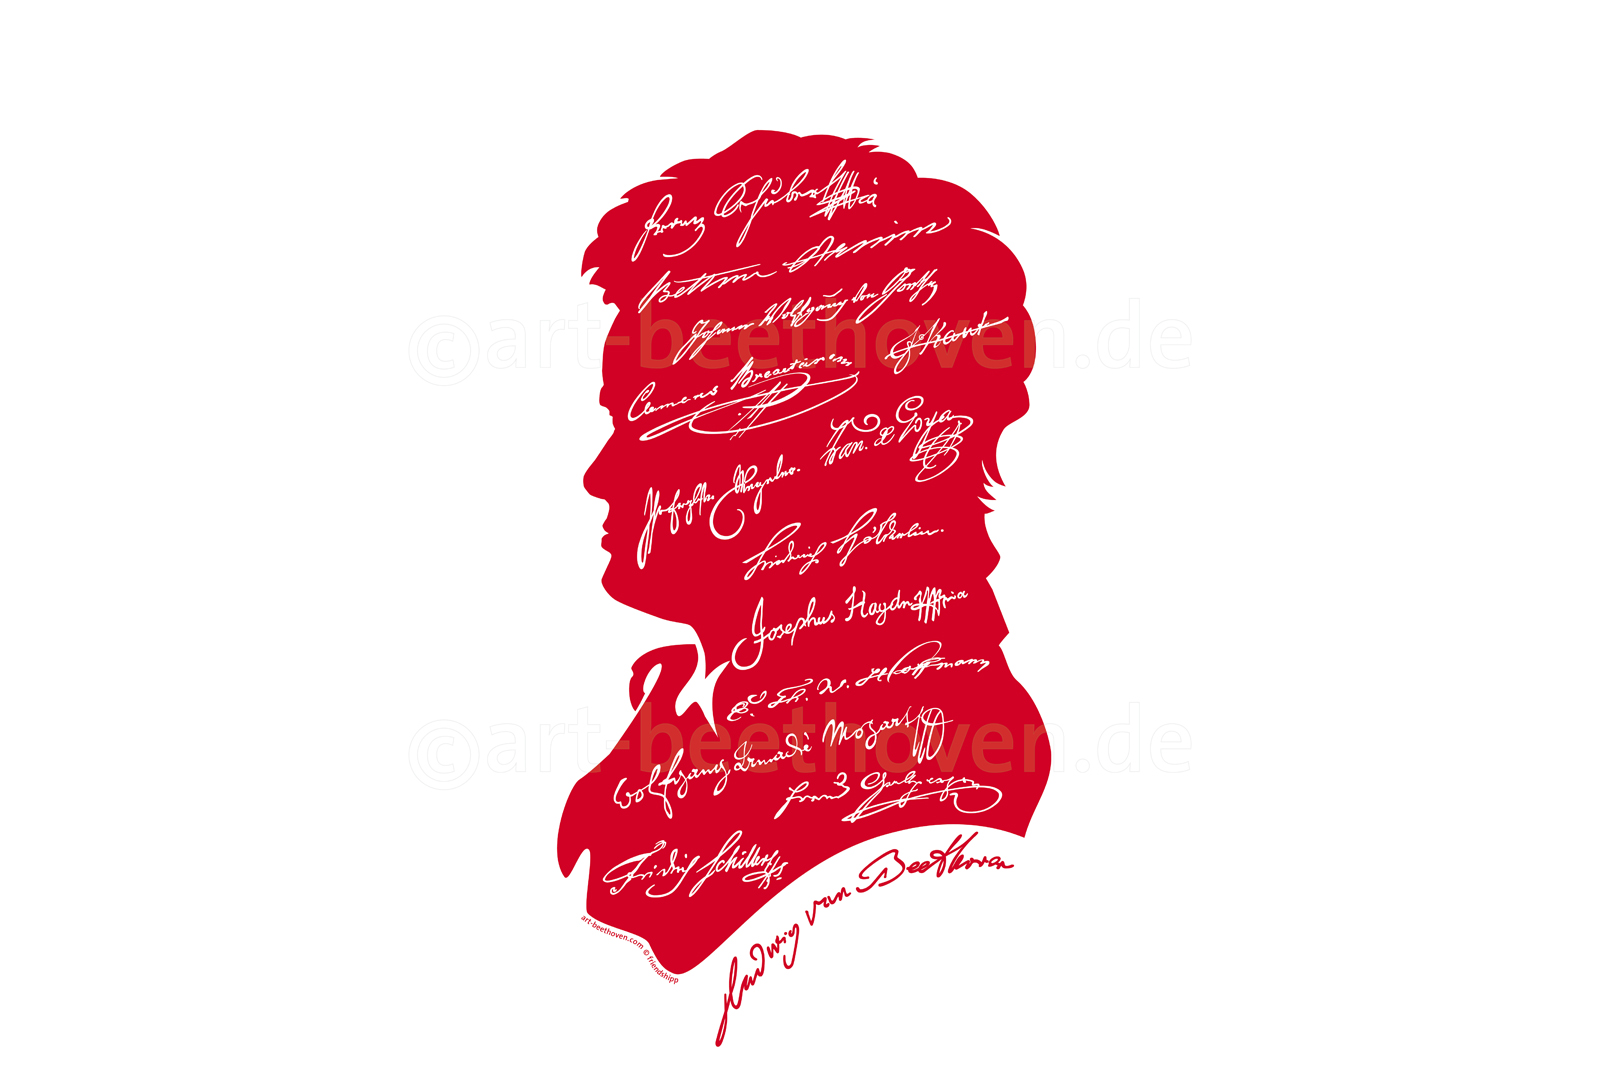 Franz Schubert
Bettina Arnim
Johann Wolfgang von Goethe
©art-beethoven.de
I Kant
Clemens Brentano
Fran. de Goya
Wegeler.
Friedrich Hölderlin.
Josephus Haydn
E. T. W. Hoffmann
©art-beethoven.de
Wolfgang Amadè Mozart
Franz
Fridrich Schiller
Ludwig van Beethoven
art-beethoven.com © friendshipp